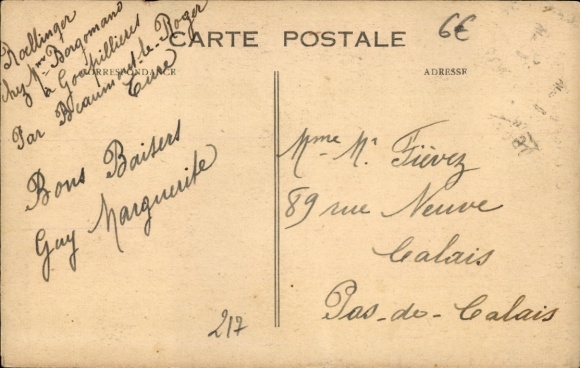 CARTE POSTALE
6€
CORRESPONDANCE
ADRESSE
Rallinger
chez Mme Borgomano
à Goupillières
Par Beaumont-le-Roger
Eure
Bons Baisers
Guy Marguerite
217
Mme M. Fièvez
89 rue Neuve
Calais
Pas-de-Calais